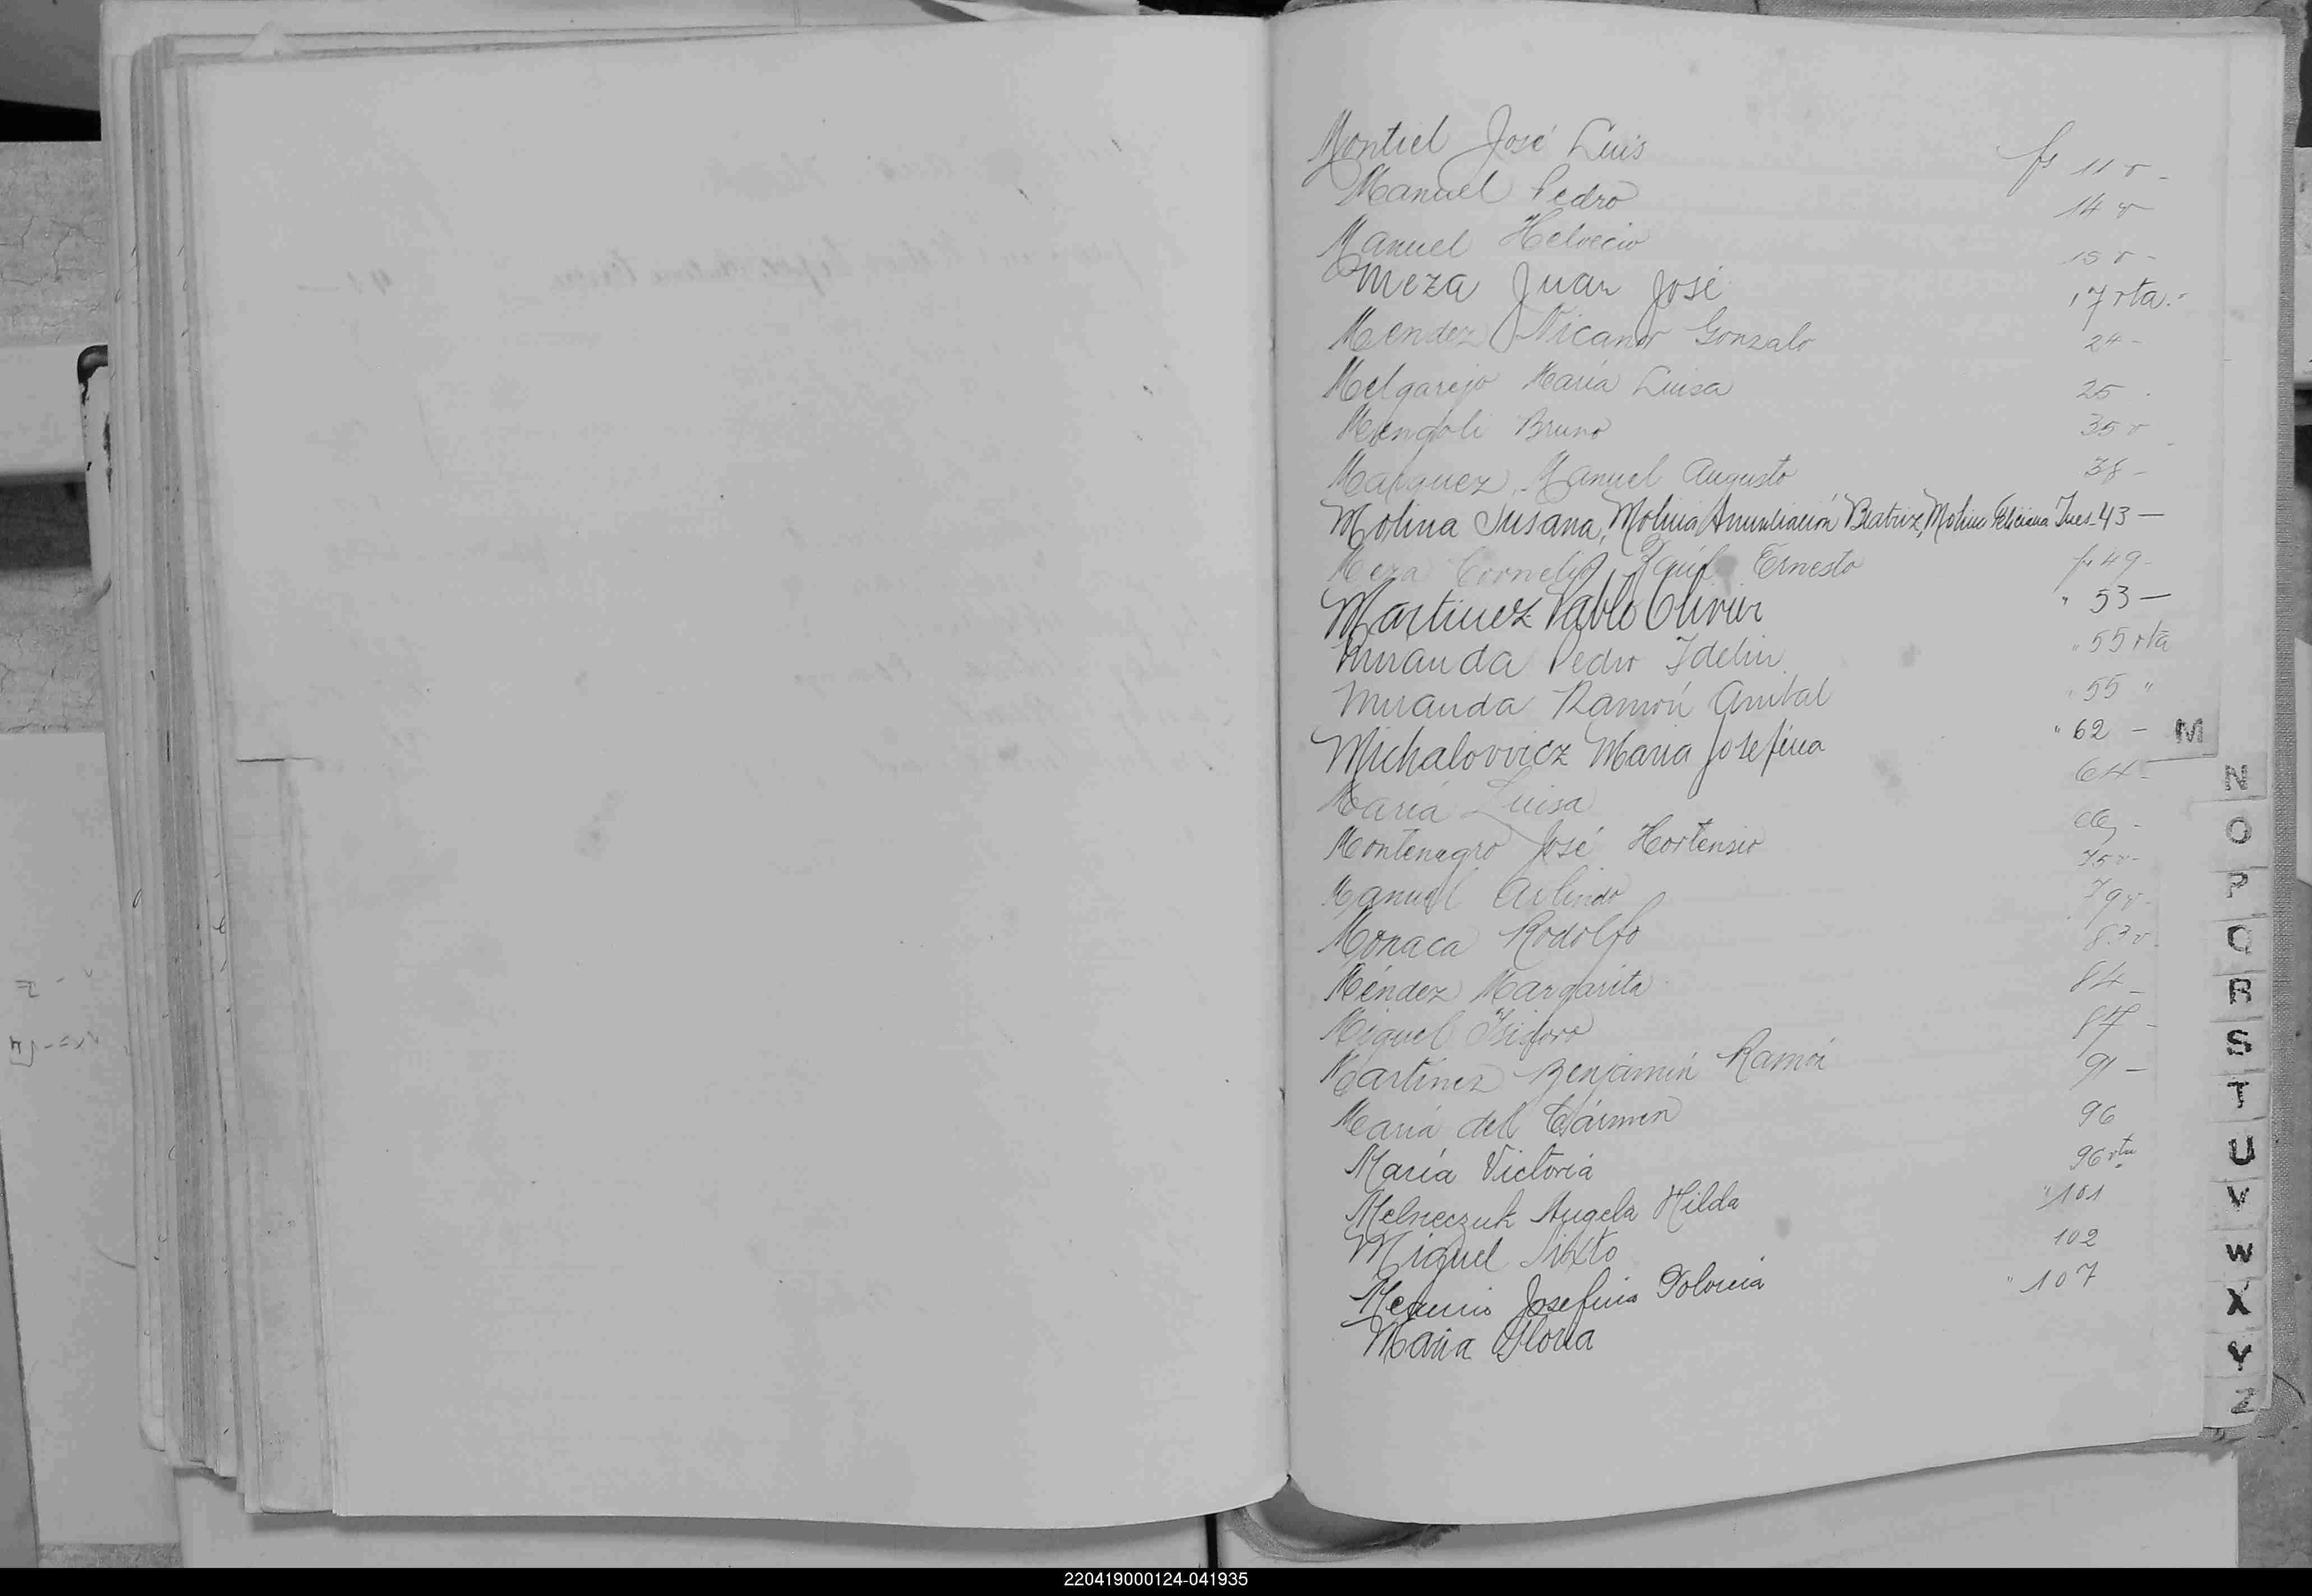 Montiel José Luis fs 11 v -
Manuel Pedro 14 v
Manuel Helvecio 15 v -
Meza Juan José 17 rta.-
Mendez Nicanor Gonzalo 24 -
Melgarejo María Luisa 25
Mengoli Bruno 35 v
Marquez, Manuel Augusto 38 -
Molina Susana, Molina Anunciación Beatriz, Molina Feliciana Ines - 43 —
Meza Cornelio, Raúl Ernesto fs 49 -
Martinez Pablo Olivier " 53 —
Miranda Pedro Idelin " 55 rta
Miranda Ramón Anibal " 55 "
Michalovvicz Maria Josefina " 62 -
M
María Luisa 64 -
Montenegro José Hortensio 66 -
Manuel Arlindo 75 v -
Monaca Rodolfo 79 v -
Méndez Margarita 83 v -
Miguel Isidoro 84 -
Martínez Benjamín Ramón 87 -
María del Cármen 91 -
María Victoria 96
Melneczuk Angela Hilda 96 rta
Miguel Sixto " 101
Josefina Polonia 102
María Gloria " 107
N
O
P
Q
R
S
T
U
V
W
X
Y
Z
220419000124-041935